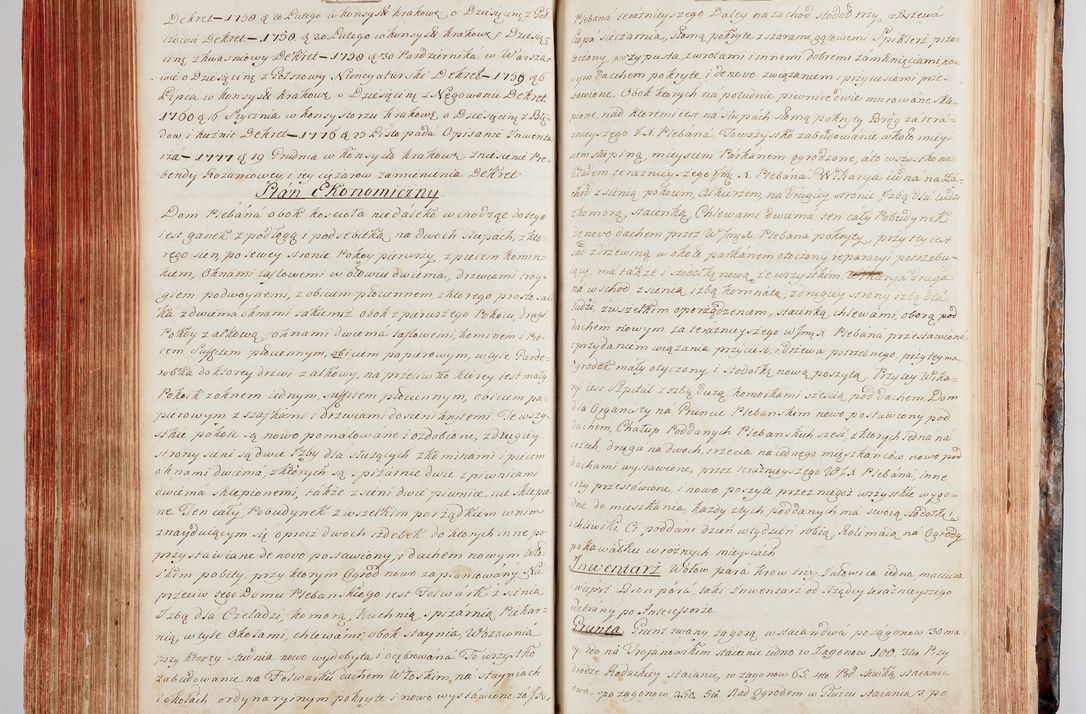 Dekret – 1758 d 20 Lutego w Konsystr. Krakows. o Dziesięcinę z Pał-
szowic Dekret – 1758 d 20 Lutego w Konsyst. Krakows. o Dziesię-
cinę z Kwasniowy Dekret – 1758 d 30 Pazdziernika w Warsza-
wie o Dziesięcinę z Polszowy Nuncyaturski Dekret – 1759 d 6
Lipca w Konsyst. Krakows. o Dziesięcinę z Negowonie Dekret
1760 d 16 Stycznia w Konsystorzu Krakows. o Dziesięcinę z Błę-
dow i Kuźnic Dekret – 1776 d 23 Listopada Opisanie Inwenta-
rza – 1777 d 19 Grudnia w Konsyst. Krakows. zniesienie Pre-
bendy Rozancowey, i iey cięzarow zamienienia Dekret
Plan Ekonomiczny
Dom Plebána obok Kościoła niedaleko wchodząc do tego
iest ganek z podłogą i podsebitką na dwoch słupach, z kto-
rego sień, po lewey stronie Pokoy pierwszy, z piecem komin-
kiem, oknami taflowemi w ołowiu dwiema, drzwiami troy-
giem podwoynemi, z obiciem płociennem z ktorego prosto sal-
ka z dwiema oknami takiemiż obok z pierwszego Pokoiu, drugi
Pokoy z alkową, oknami dwiema taflowemi, kominem i Pie-
cem Suffitem płociennym, obiciem papierowym, w tyle Garde-
robka do ktorey drzwi z alkowy, na przeciwko ktorey iest mały
Pokoik z oknem iednym, suffitem płociennym, obiciem pa-
pierowym z szafkami i Drzwiami do sieni ... Te wszy-
stkie pokoie są nowo pomalowane i ozdobione, z drugiey
strony sieni są dwie Izby dla słuzących z kominami i piecem
oknami dwiema z ktorych są spizarnie dwie z piwnicami
dwiema sklepionemi, także z sieni dwie piwnice nie sklepio-
ne. Ten cały Pobudynek z wszelkim porządkiem w nim
znayduiącym się oprocz dwoch izdebek do ktorych inne po-
przystawiane de novo postawiony, i dachem nowym Wło-
skim pobity, przy ktorym Ogrod nowo zaplantowany Na
przeciw tego Domu Plebanskiego iest Folwark z sienią
Izbą dla Czeladzi, komorą, kuchnią, spizarnią, Piekar-
nią, w tyle Okołami, chlewami, obok Staynia, Wozownia
przy ktorey studnia nowo wydobyta i ocębrowana. To wszystko
zabudowanie na Folwarku dachem Włoskim, na stayniach
i okołach ordynaryinym pokryte i nowo wystawione za J.X.
Plebaná teraznieyszego Daley na zachod stodoł trzy, z Drzewá
Chłopá sieczarnia, słomą pokryte z szarami gąlewemi Spiklerz prze-
łączony, przy pusta z wrotami i innemi dobremi zamknięciami, no-
wym dachem pokryte i de novo związaniem i przyciesiami prze-
stawione. Obok ktorych na południe piwnice dwie murowane skle-
pione, nad ktoremi iest na słupach słomą pokryty Bróg za terá-
znieyszego X. Plebaná. To wszystko zabudowanie wkoło miey-
scem słupiną, mieyscem Parkanem ogrodzone, á to wszystko na-
kładem teraznieyszego Jmć X. Plebaná. Wikarya iedna na Zá-
chod z sienią pokoiem, alkierzem, na drugiey stronie Izbą dla ludzi
z komorą, staienką, Chlewami dwiema ten cały Pobudynek
denovo dachem przez W Jmć X. Plebaná pokryty, przy tey iest
Sad z drzewiną w około parkanem otoczony reparacyi potrzebu-
iący, ma także i stodołkę nową, ze wszystkiem. Wikarya druga
ná wschod z sienią izbą komnatą, z drugiey strony izbą dlá
ludzi, z wszelkim oporządzeniem, staienką, chlewami, oborą pod
dachem nowym za teraznieyszego W Jmć X. Plebana przestawiona
z przydaniem wiązania przyciesi i drzewa potrzebnego przy tey ma
Ogrodek mały otyczony i stodołkę nową poszytą. Przy tey Wika-
ryi iest Szpital z izbą dużą komorkami sześcią pod dachem, Dom
dla Organisty na Gruncie Plebanskim nowo postawiony pod
dachem, Chałup Poddanych Plebanskich sześć z ktorych iedna ná
trzech, druga na dwoch, trzecia na iednego mieszkańcow nowo pod
dachami wystawione, przez teraznieyszego W J. X. Plebána, inne
trzy przestawione, i nowo poszyte przez niegoż wszystkie wygo-
dne do mieszkania kazdy z tych poddanych ma swoią stodołkę i
chliwiki. Ci poddani dzień w tydzień robią, Roli maią na Ogrody
po kawałku w rożnych mieyscach
Inwentarz Wołow para krow trzy, Jałowica iedna, maciora
i wieprz Bron para, taki Inwentarz od Rządcy teraznieyszego
odebrany po Antecessorze
Grunta Grunt zwany zagorą, w staian dwá po zagonow 30 ma-
ły 2do na Troianowskim staianie iedno w Zagonow 100. 3tio Przy
drodze Rodackiey staianie, w zagonow 65. 4to Pod Sławką staiania
dwa, po zagonow 250. 5to. Nad Ogrodem w Płuczu staiania 3 po